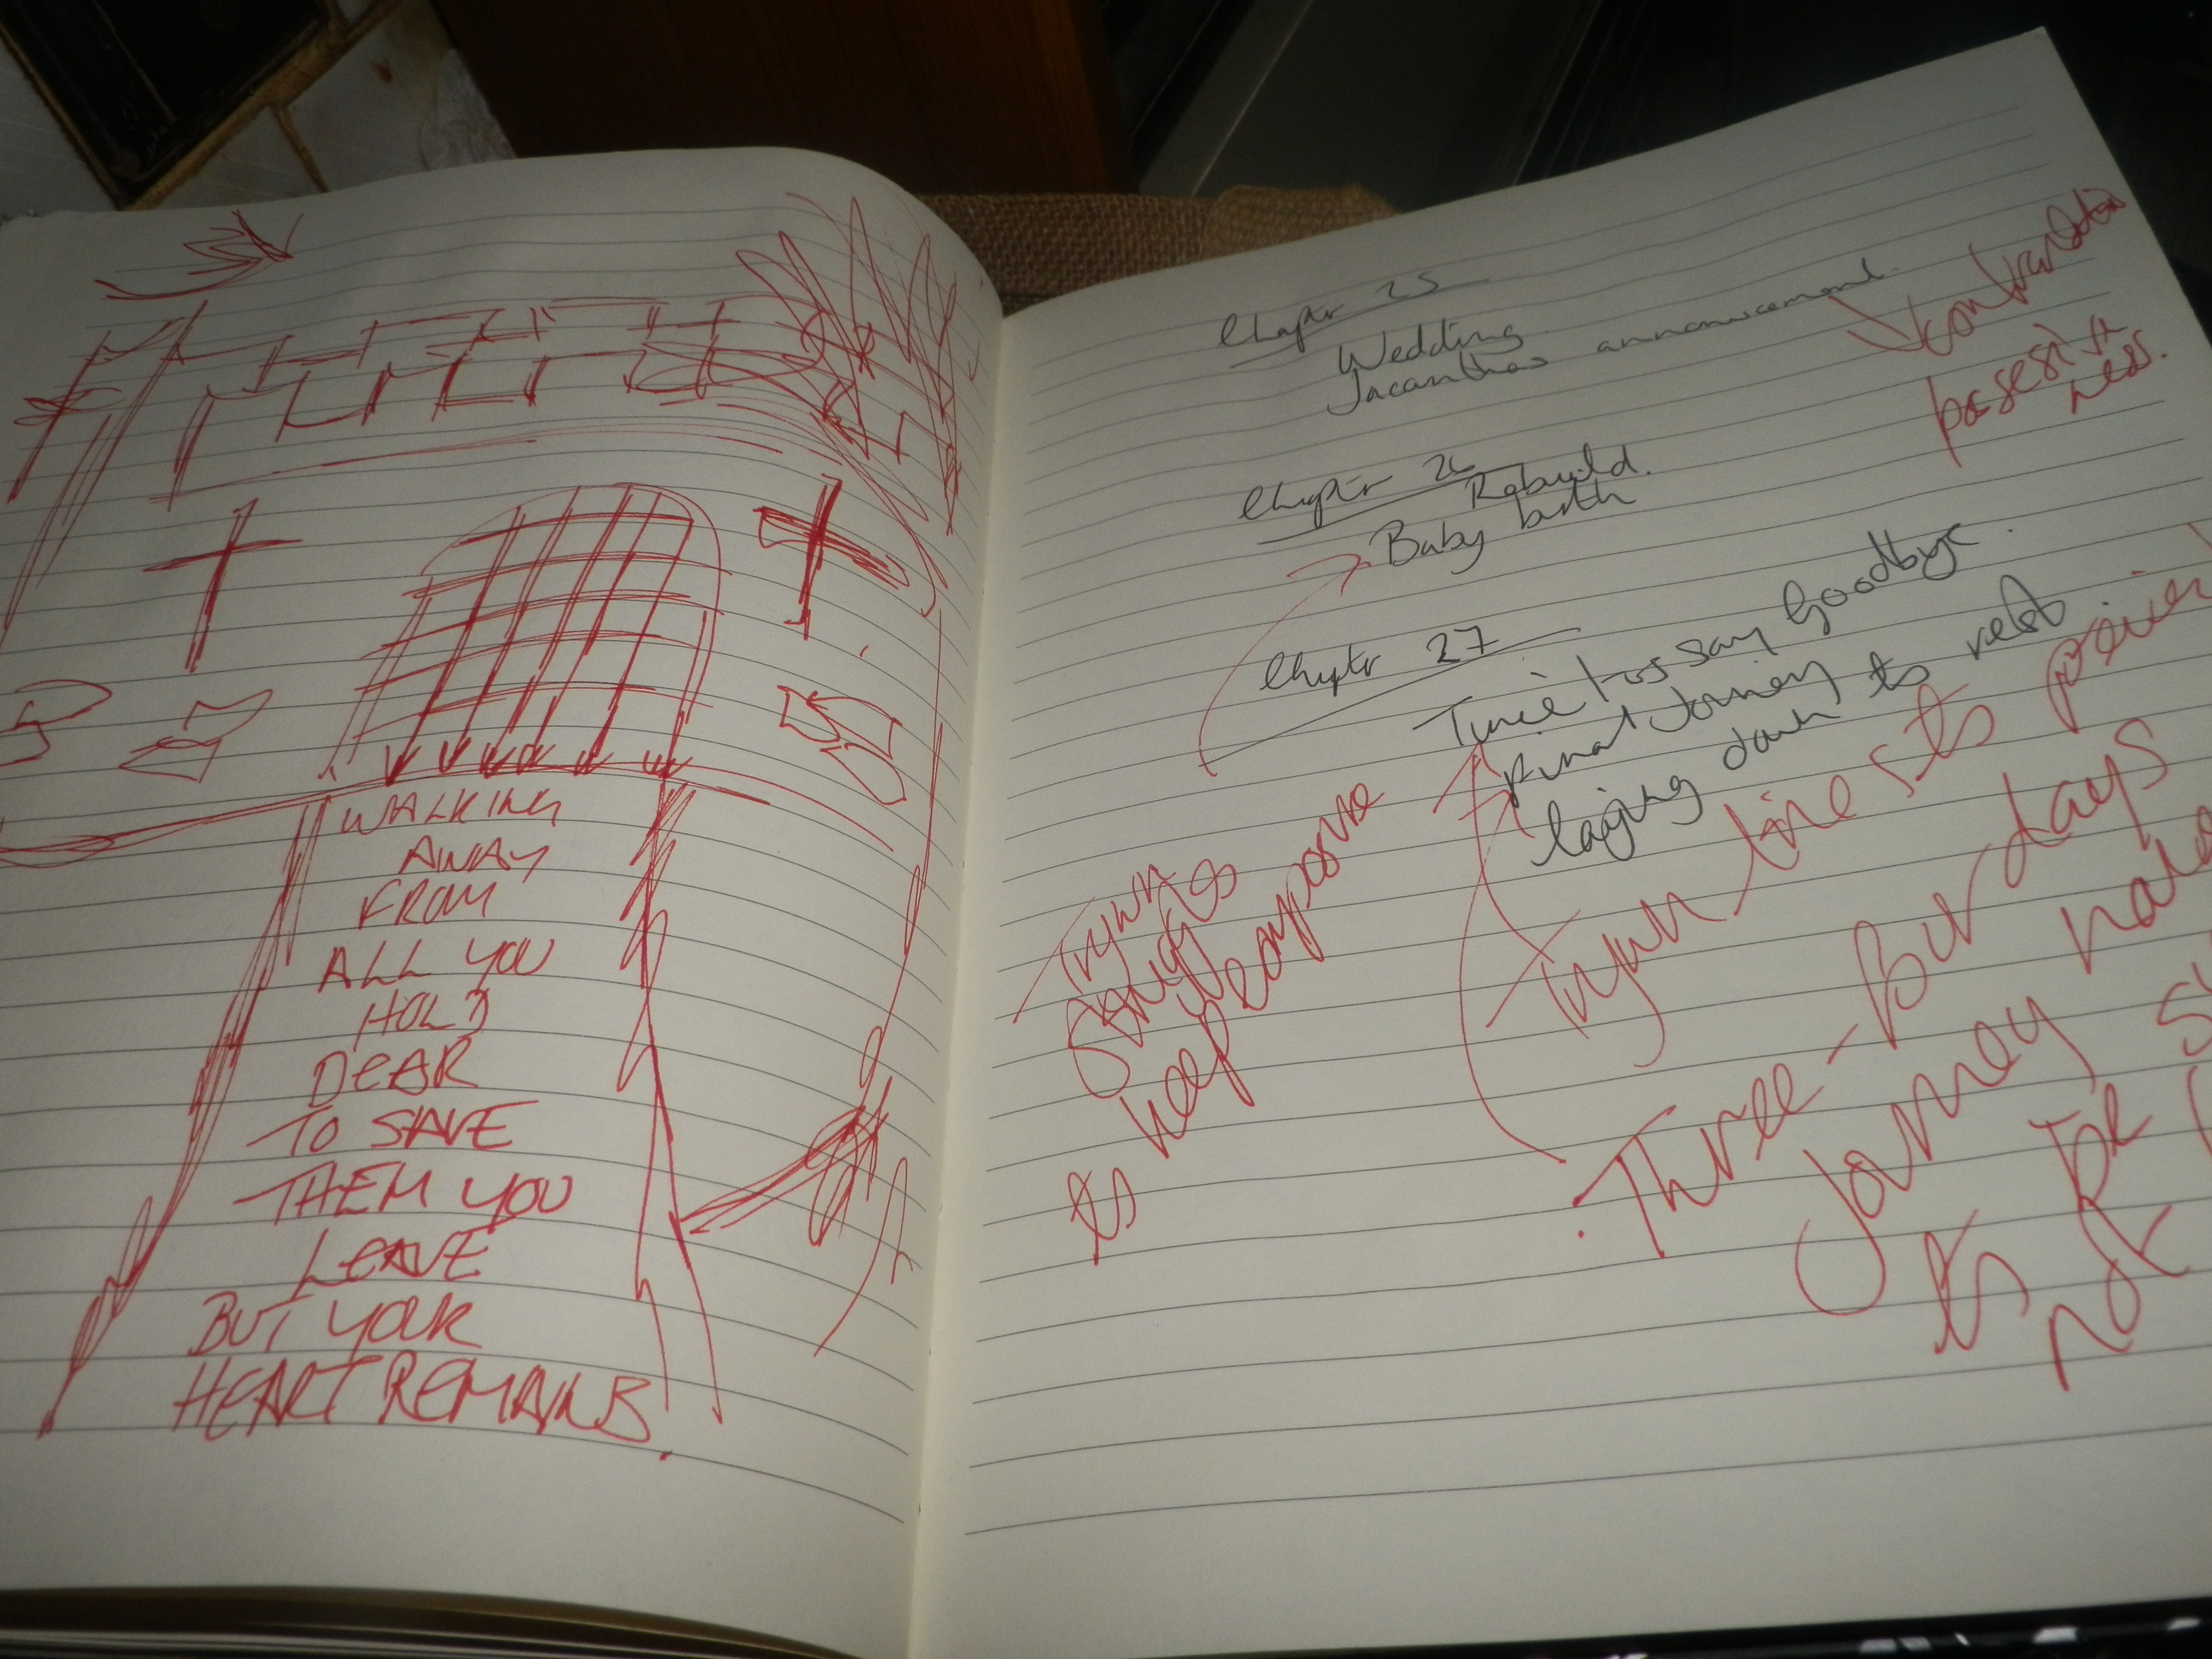 WALKING
AWAY
FROM
ALL YOU
HOLD
DEAR
TO SAVE
THEM YOU
LEAVE
BUT YOUR
HEART REMAINS.
Chapter 25
Wedding
Jacanthas announcement.
Chapter 26
Rebuild.
Baby birth
Chapter 27
Time to say Goodbye.
Final Journey
laying down to rest
Tryun
to keep composure
Tryun tries to
Three-Four days
Journey
to the